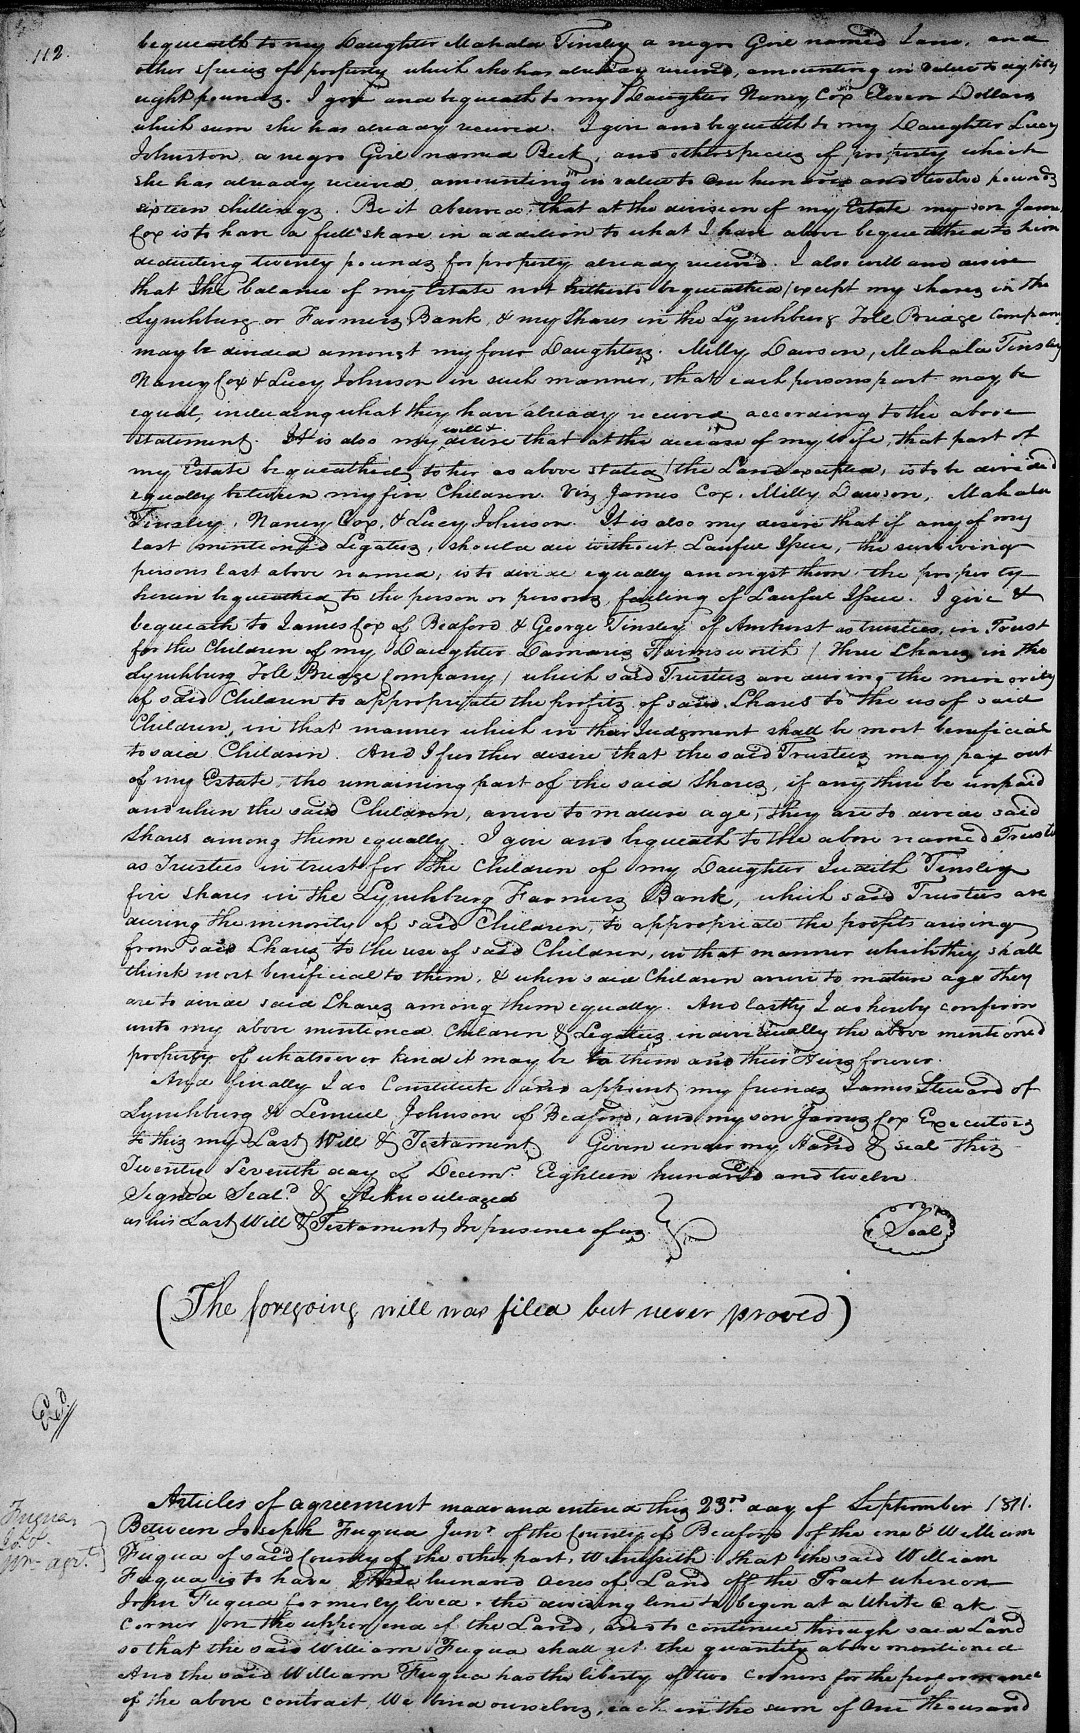 112.
bequeath to my Daughter Mahala Tinsley a negro Girl named Jane, and
other species of property which she has already received, amounting in value to eighty
eight pounds. I give and bequeath to my Daughter Nancy Cox Eleven Dollars
which sum she has already received. I give and bequeath to my Daughter Lucy
Johnston, a negro Girl named Beck, and other species of property which
she has already received, amounting in value to one hundred and twelve pounds
sixteen shillings. Be it observed, that at the division of my Estate my son James
Cox is to have a full share in addition to what I have above bequeathed to him
deducting twenty pounds for property already received. I also will and desire
that the balance of my Estate not hitherto bequeathed (except my shares in the
Lynchburg or Farmers Bank, & my Shares in the Lynchburg Toll Bridge Company
may be divided amongst my four Daughters. Milly Dawson, Mahala Tinsley
Nancy Cox & Lucy Johnson in such manner, that each persons part may be
equal, including what they have already received according to the above
statement. It is also my will & desire that at the decease of my wife, that part of
my Estate bequeathed to her as above stated (the Land excepted, is to be divided
equally between my five Children. Viz James Cox, Milly Dawson, Mahala
Tinsley, Nancy Cox, & Lucy Johnson. It is also my desire that if any of my
last mentioned Legatees, should die without Lawful Issue, the surviving
persons last above named, is to divide equally amongst them, the property
herein bequeathed to the person or persons, failing of Lawful Issue. I give &
bequeath to James Cox of Bedford & George Tinsley of Amherst as trustees, in Trust
for the Children of my Daughter Damaris Harnsworth (three Shares in the
Lynchburg Toll Bridge Company) which said Trustees are during the minority
of said Children to appropriate the profits of said Shares to the use of said
Children, in that manner which in their Judgment shall be most beneficial
to said Children. And I further desire that the said Trustees may pay out
of my Estate, the remaining part of the said Shares, if any there be unpaid
and when the said Children, arive to mature age, they are to divide said
Shares among them equally. I give and bequeath to the above named Trustees
as Trustees in trust for the Children of my Daughter Judith Tinsley
five shares in the Lynchburg Farmers Bank, which said Trustees are
during the minority of said Children, to appropriate the profits arising
from said Shares to the use of said Children, in that manner which they shall
think most beneficial to them, & when said Children arive to mature age they
are to divide said Shares among them equally. And lastly I do hereby confirm
unto my above mentioned Children & Legatees individually the above mentioned
property of whatsoever kind it may be to them and their Heirs forever.
And finally I do Constitute and appoint my friends James Steward of
Lynchburg & Lemuel Johnson of Bedford, and my son James Cox Executors
to this my Last Will & Testament Given under my Hand & seal this
Twenty Seventh day of Decemr. Eighteen hundred and twelve
Signed Seald. & Acknowledged
as his Last Will & Testament, In presence of us
Seal
(The foregoing will was filed but never proved)
Exd.
Fuqua,
Jos.
Wm agt.
Articles of agreement made and entered this 23rd day of September 1811.
Between Joseph Fuqua Junr. of the County of Bedford of the one & William
Fuqua of said County of the other part, Witnesseth that the said William
Fuqua is to have three hundred acres of Land off the Tract whereon
John Fuqua formerly lived, the dividing line to begin at a White Oak
corner on the upper end of the Land, and to continue through said Land
so that the said William Fuqua shall get the quantity above mentioned
And the said William Fuqua has the liberty of two corners for the performance
of the above contract We bind ourselves, each in the sum of One thousand